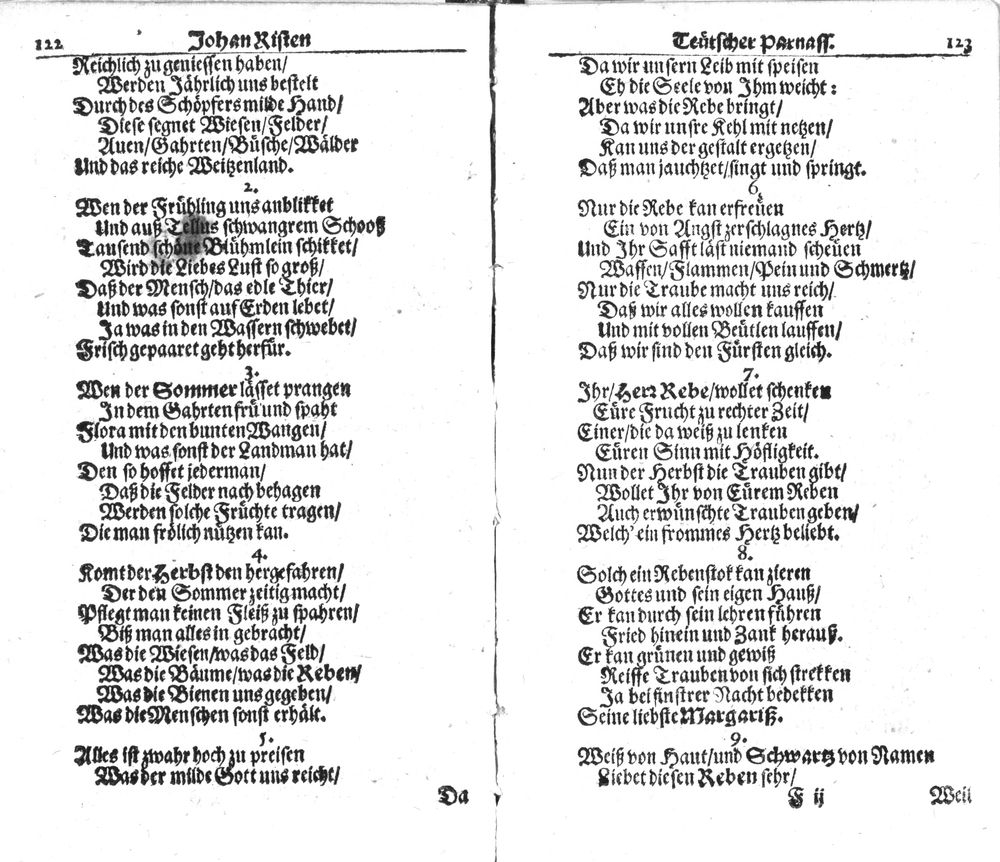 122 Johan Risten
Reichlich zu geniessen haben/
Werden Jährlich uns bestelt
Durch des Schöpfers milde Hand/
Diese segnet Wiesen/Felder/
Auen/Gahrten/Büsche/Wälder
Und das reiche Weitzenland.
2.
Wen der Frühling uns anblikket
Und auß Tellus schwangrem Schooß
Tausend schöne Blühmlein schikket/
Wird die Liebes Lust so groß/
Daß der Mensch/das edle Thier/
Und was sonst auf Erden lebet/
Ja was in den Wassern schwebet/
Frisch gepaaret geht herfür.
3.
Wen der Sommer lässet prangen
In dem Gahrten frü und spaht
Flora mit den bunten Wangen/
Und was sonst der Landman hat/
Den so hoffet jederman/
Daß die Felder nach behagen
Werden solche Früchte tragen/
Die man frölich nützen kan.
4.
Komt der Herbst den hergefahren/
Der den Sommer zeitig macht/
Pflegt man keinen Fleiß zu spahren/
Biß man alles in gebracht/
Was die Wiesen/was das Feld/
Was die Bäume/was die Reben/
Was die Bienen uns gegeben/
Was die Menschen sonst erhält.
5.
Alles ist zwahr hoch zu preisen
Was der milde Gott uns reicht/
Da
Teütscher Parnass. 123
Da wir unsern Leib mit speisen
Eh die Seele von Ihm weicht:
Aber was die Rebe bringt/
Da wir unsre Kehl mit netzen/
Kan uns der gestalt ergetzen/
Daß man jauchtzet/singt und springt.
6.
Nur die Rebe kan erfreüen
Ein von Angst zerschlagnes Hertz/
Und Ihr Safft läst niemand scheüen
Waffen/Flammen/Pein und Schmertz/
Nur die Traube macht uns reich/
Daß wir alles wollen kauffen
Und mit vollen Beütlen lauffen/
Daß wir sind den Fürsten gleich.
7.
Ihr/Herr Rebe/wollet schenken
Eüre Frucht zu rechter Zeit/
Einer/die da weiß zu lenken
Eüren Sinn mit Höfligkeit.
Nun der Herbst die Trauben gibt/
Wollet Ihr von Eürem Reben
Auch erwünschte Trauben geben/
Welch' ein frommes Hertz beliebt.
8.
Solch ein Rebenstok kan zieren
Gottes und sein eigen Hauß/
Er kan durch sein lehren führen
Fried hinein und Zank herauß.
Er kan grünen und gewiß
Reiffe Trauben von sich strekken
Ja bei finstrer Nacht bedekken
Seine liebste Margariß.
9.
Weiß von Haut/und Schwartz von Namen
Liebet diesen Reben sehr/
F ij Weil